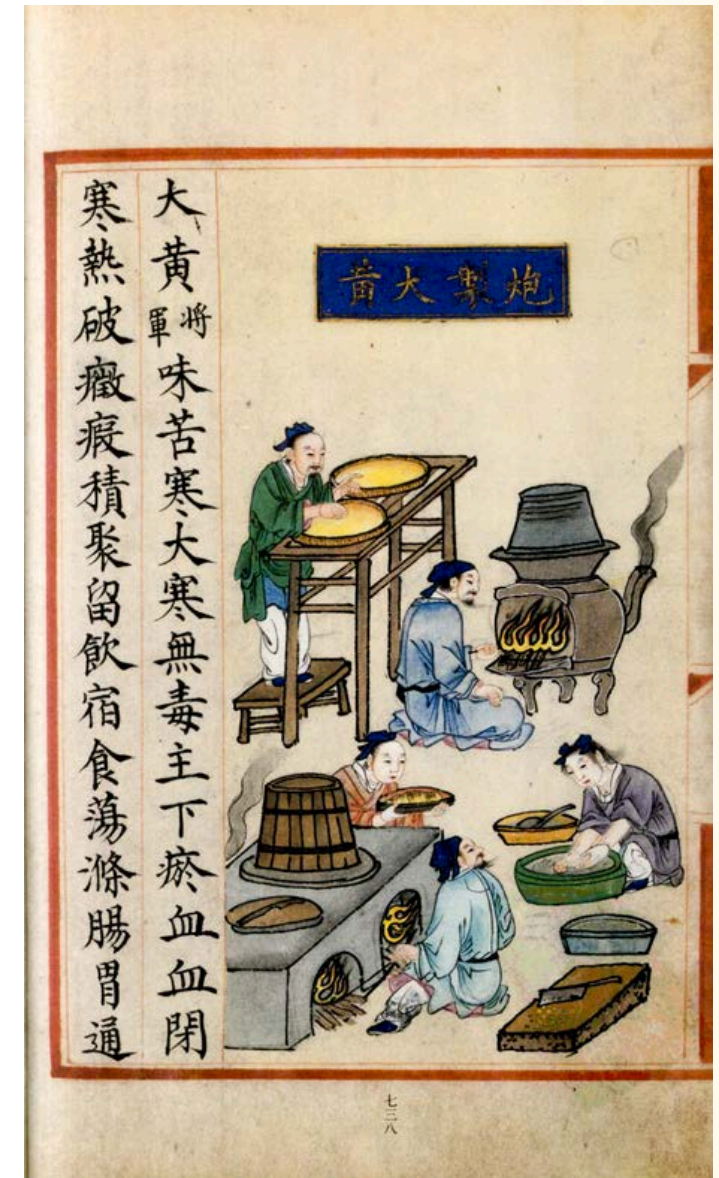 炮製大黃
大黃將軍味苦寒大寒無毒主下瘀血血閉
寒熱破癥瘕積聚留飲宿食蕩滌腸胃通
七三八